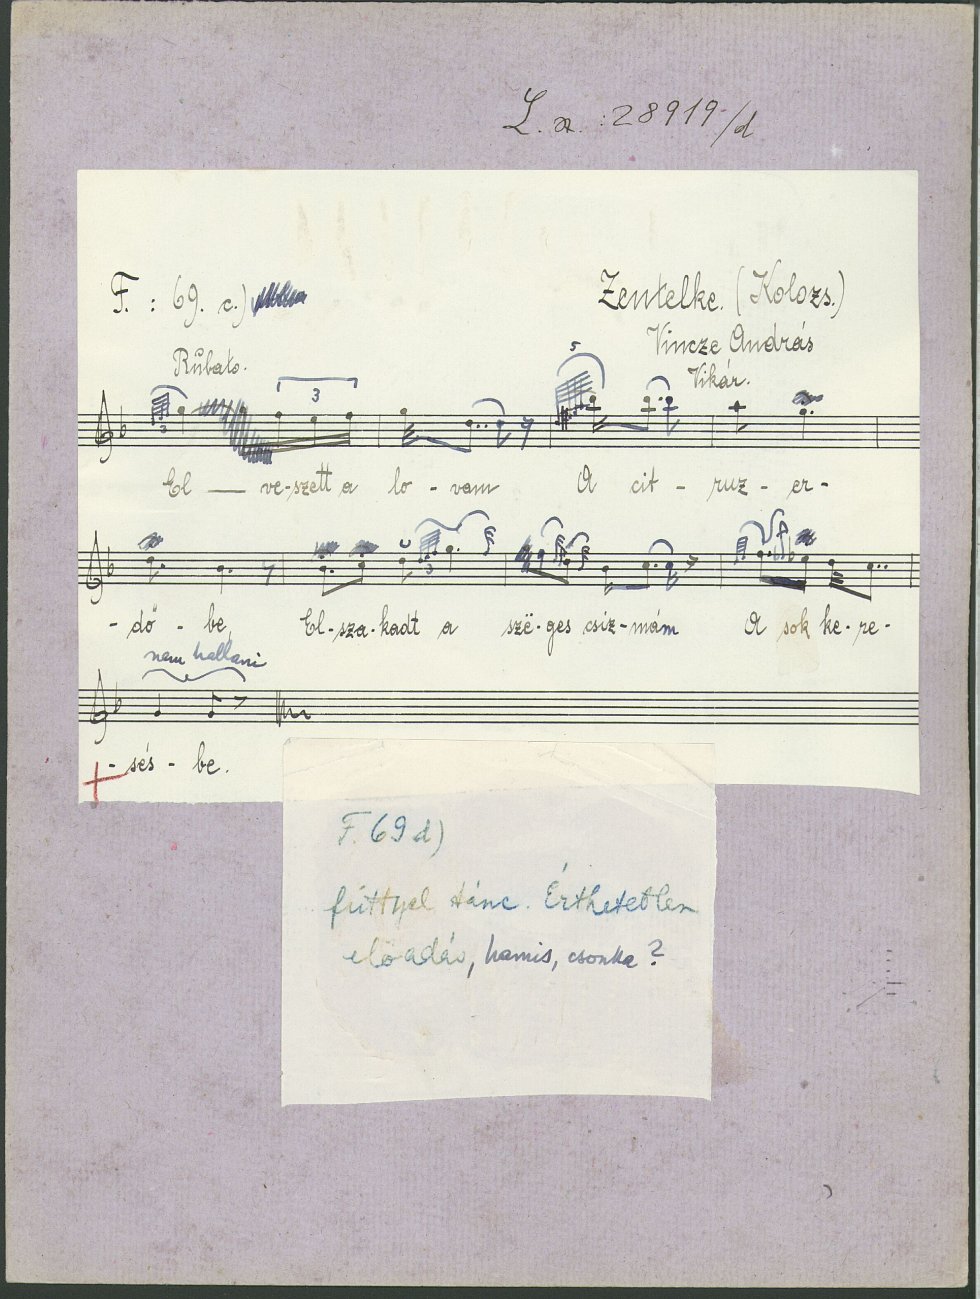 L. sz. : 28919/d
F. : 69. c.)
Zentelke. (Kolozs.)
Vincze András
Vikár.
Rubato.
3
5
3
El — ve-szett a lo - vam A cit - ruz - er -
3
- dő - be, El-sza-kadt a szë-ges csiz-mám A sok ke-re-
nem hallani
- sés - be.
F. 69 d)
füttyel tánc. Érthetetlen
előadás, hamis, csonka?